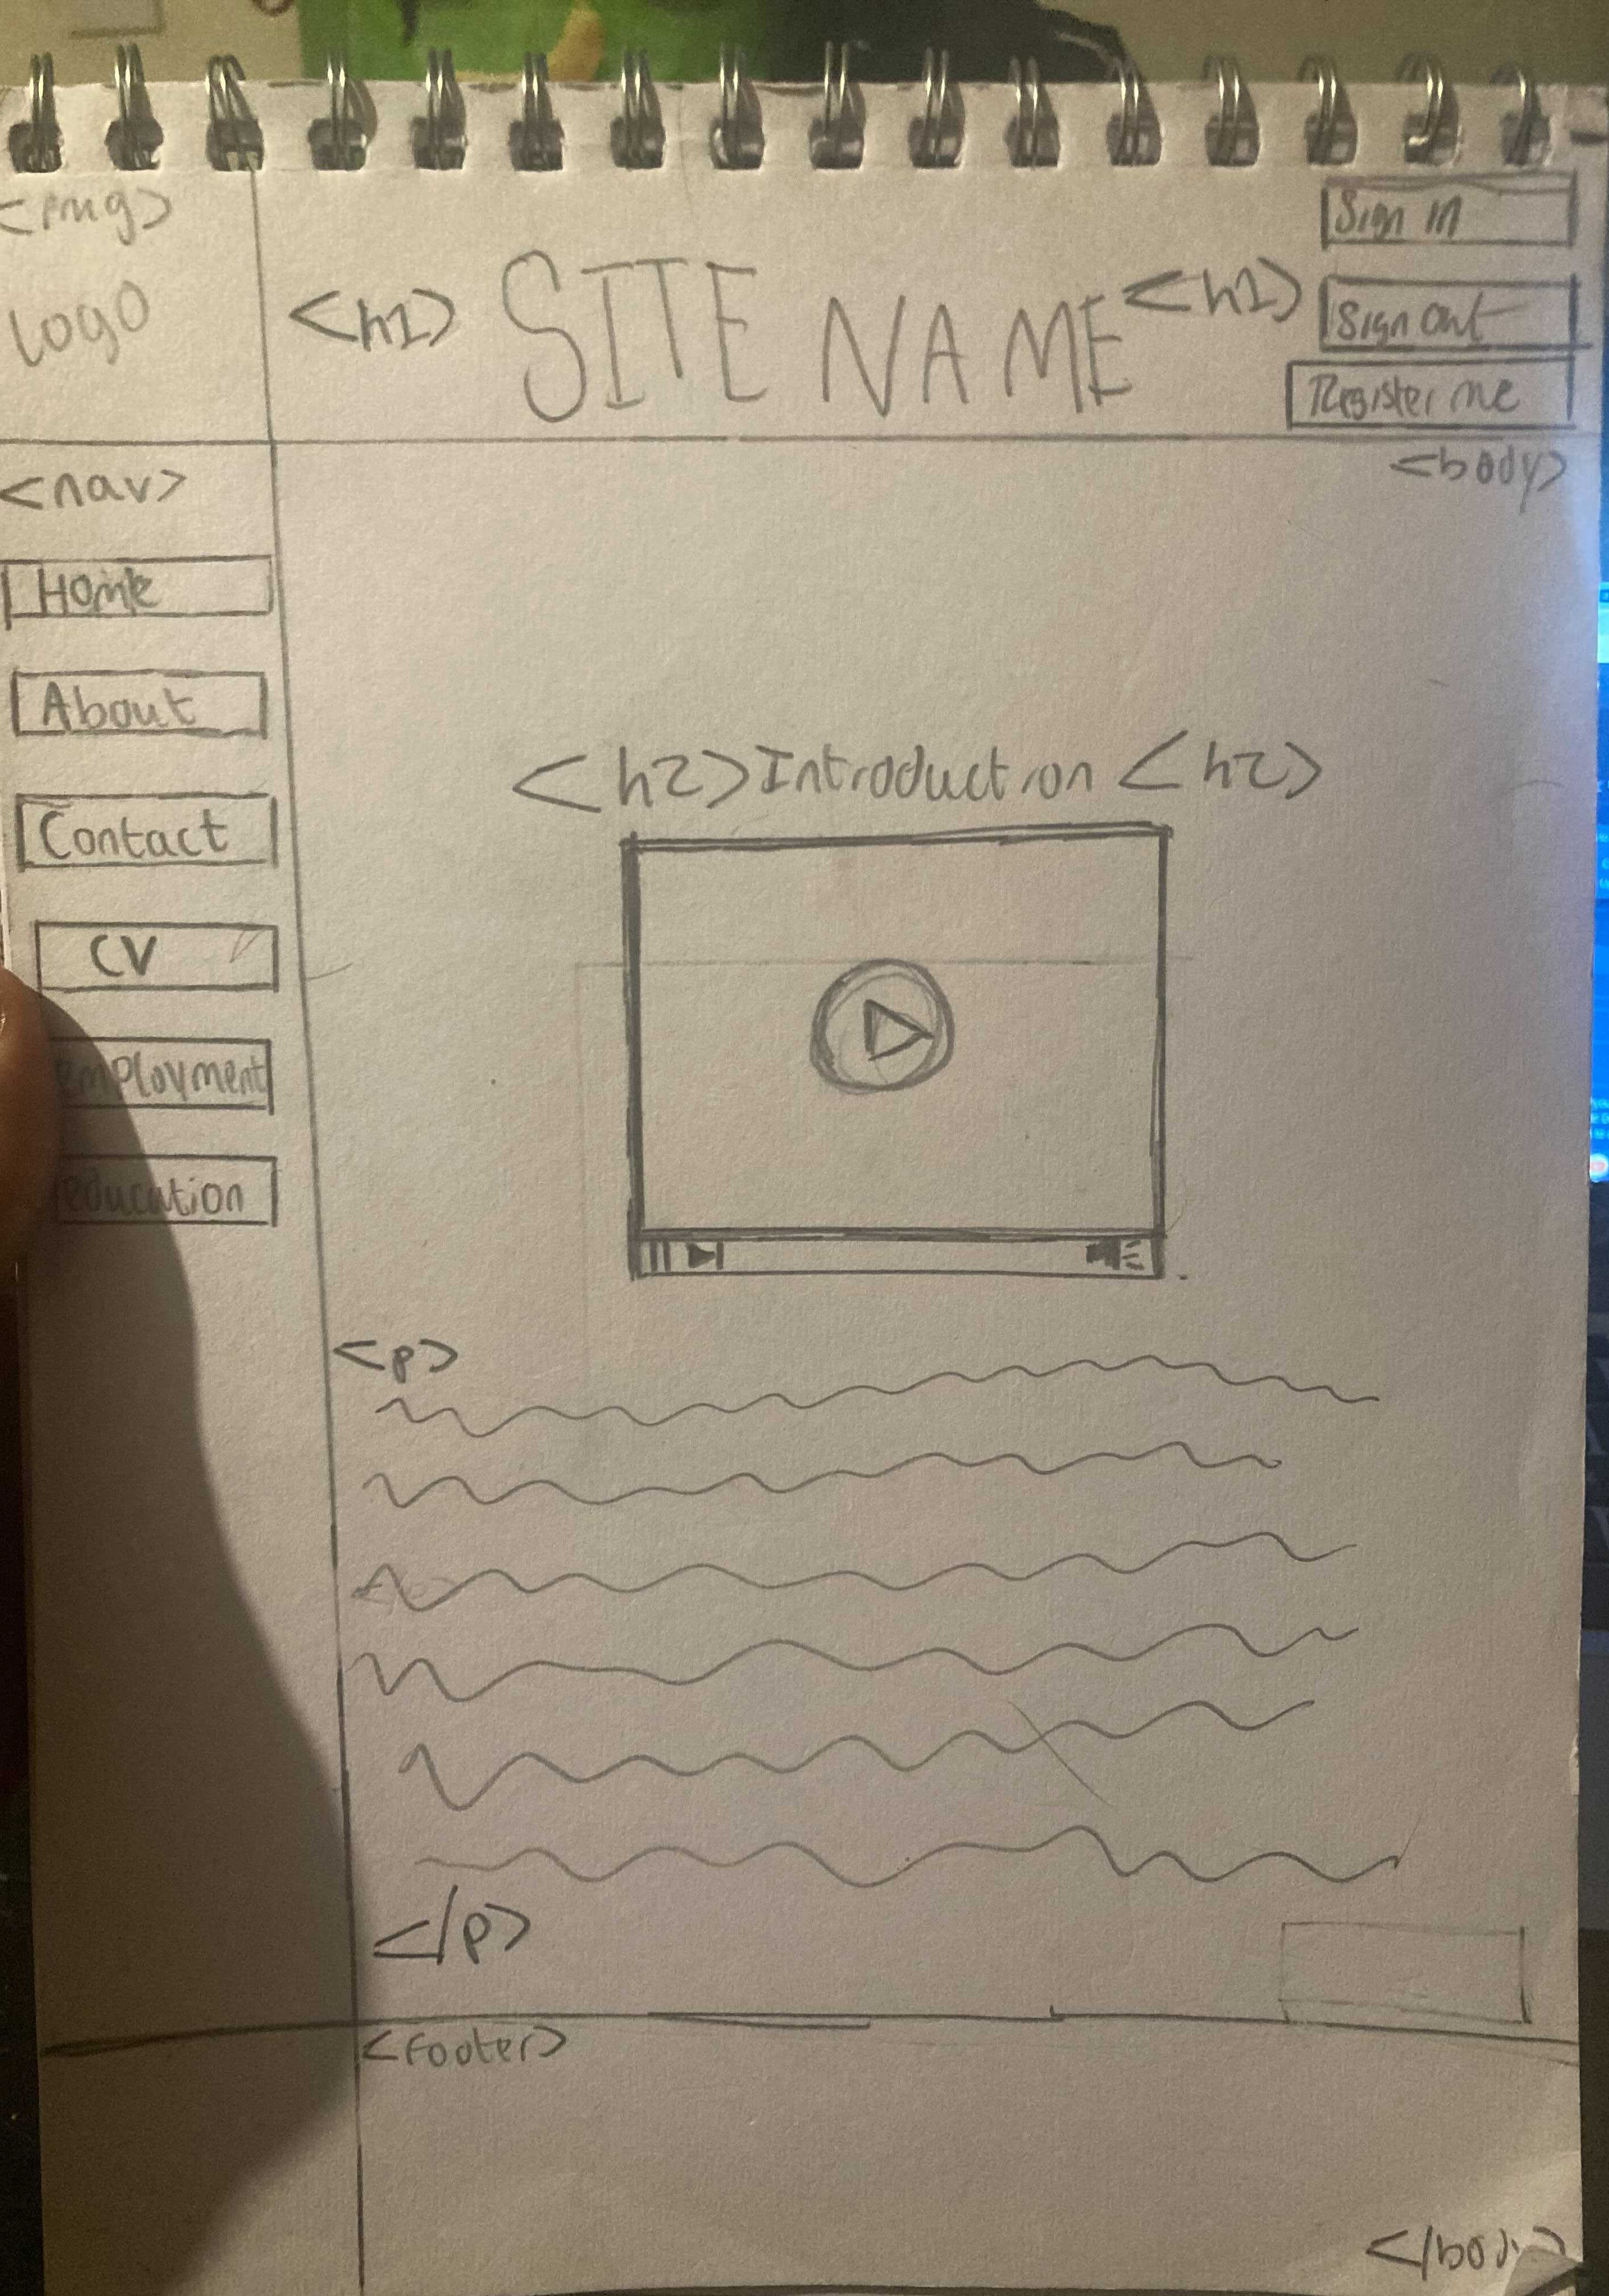 <img>
logo
<h1> SITE NAME <h1>
Sign in
Sign Out
Register me
<nav>
Home
About
Contact
CV
employment
education
<body>
<h2>Introduction <h2>
<p>
</p>
<footer>
</body>